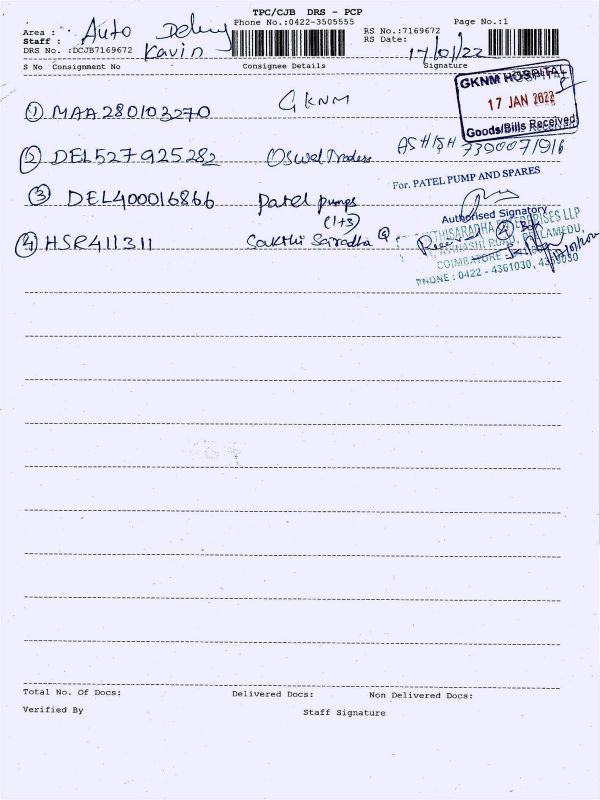 TPC/CJB DRS - PCP
Phone No.:0422-3505555
Page No.:1
Area : Auto Delvy
Staff : Kavin
DRS No. :DCJB7169672
RS No.:7169672
RS Date: 17/01/22
S No Consignment No Consignee Details Signature
GKNM HOSPITAL
17 JAN 2022
Goods/Bills Received
① MAA280103270 GKNM
② DEL527925282 Oswal Traders ASHISH 7390071916
③ DEL400016866 Patel pumps
For. PATEL PUMP AND SPARES
Authorised Signatory
(1+3)
④ HSR411311 Sakthi Saradha
Received
COIMBATORE
PHONE : 0422 - 4361030,
Total No. Of Docs: Delivered Docs: Non Delivered Docs:
Verified By Staff Signature